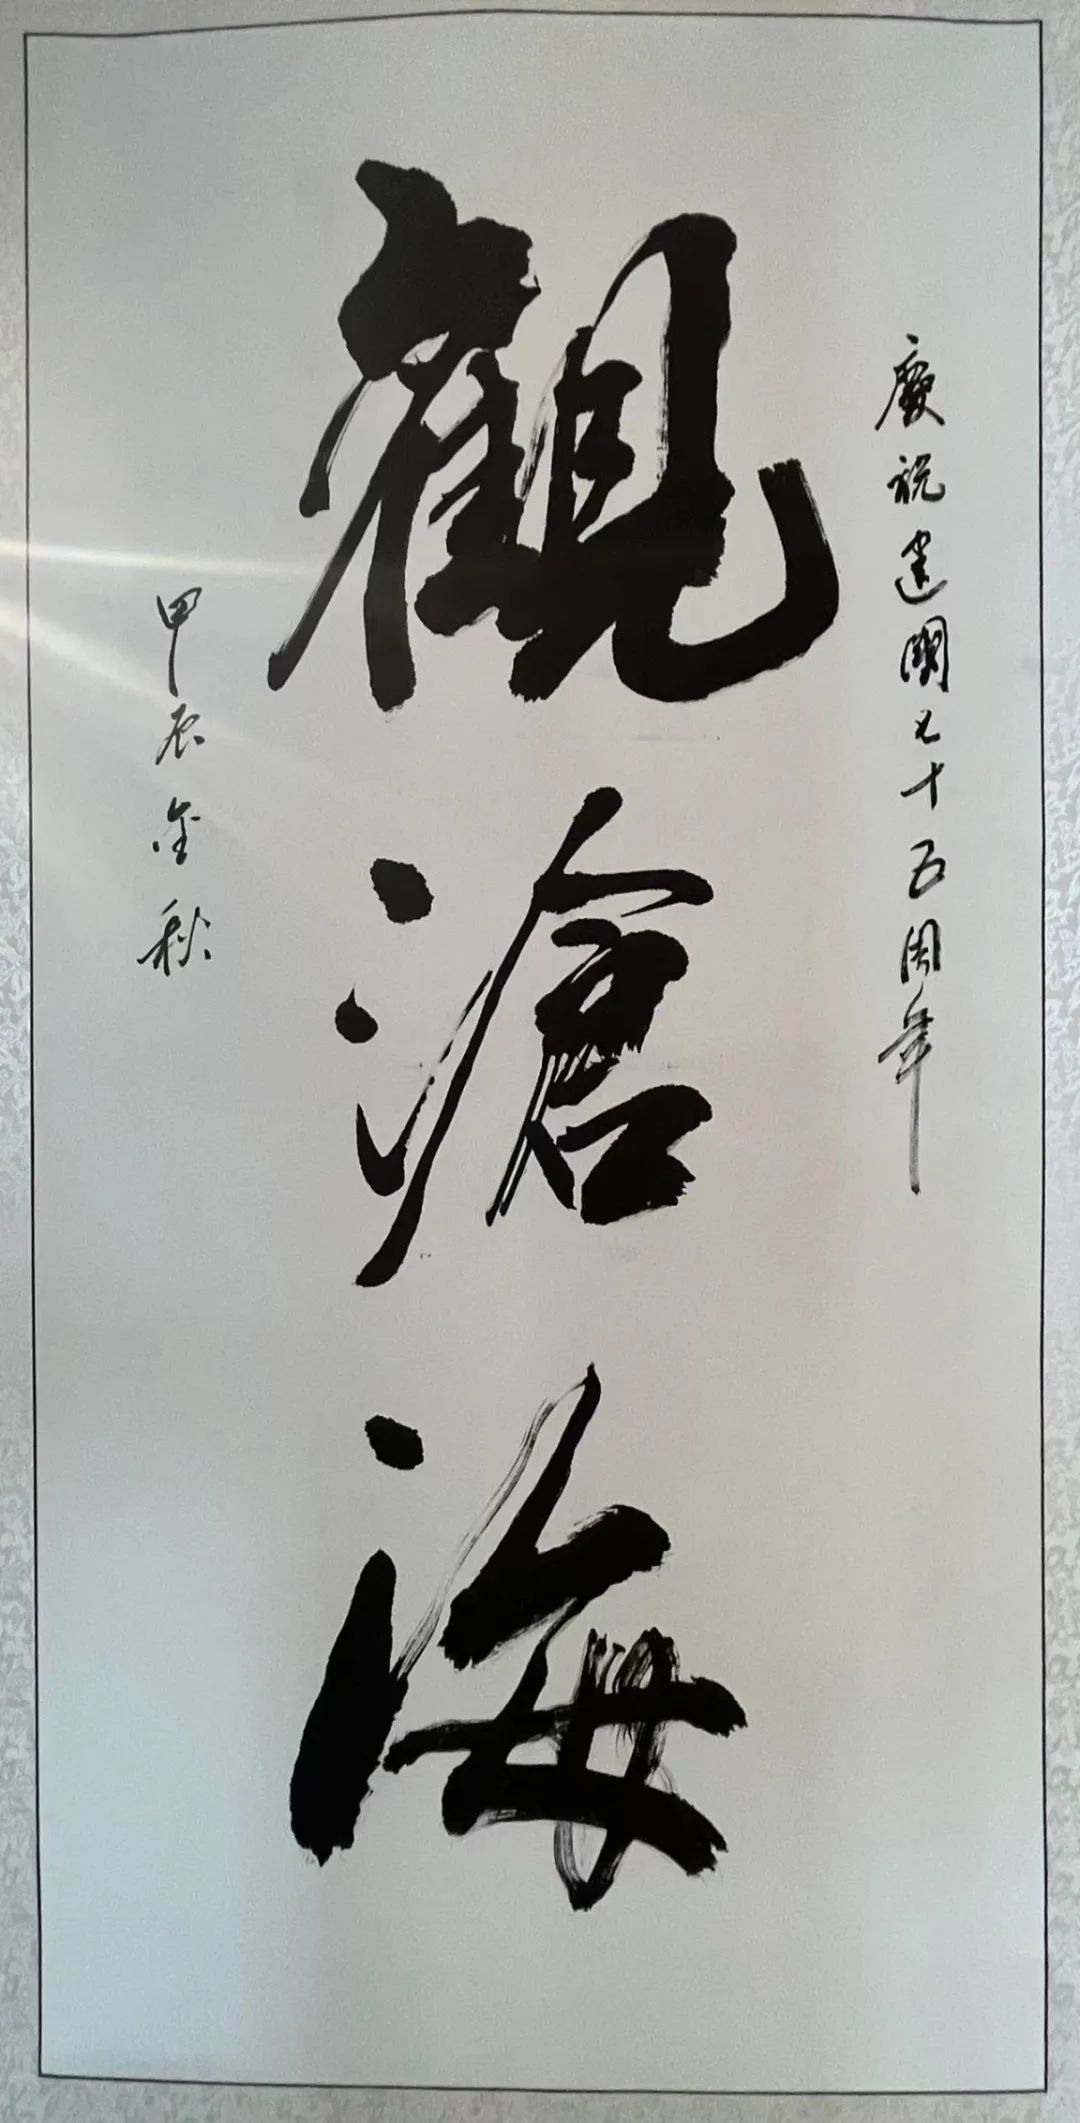 慶祝建國七十五周年
觀滄海
甲辰金秋